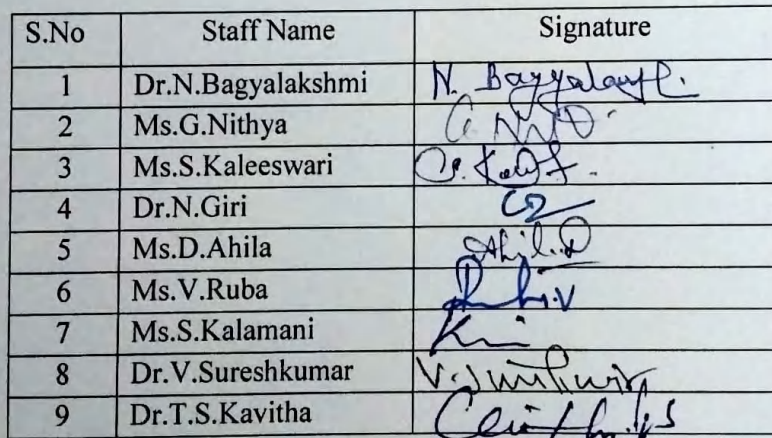 S.No Staff Name Signature
1 Dr.N.Bagyalakshmi N. Bagyalakshmi.
2 Ms.G.Nithya
3 Ms.S.Kaleeswari
4 Dr.N.Giri
5 Ms.D.Ahila Ahila.D
6 Ms.V.Ruba
7 Ms.S.Kalamani
8 Dr.V.Sureshkumar
9 Dr.T.S.Kavitha